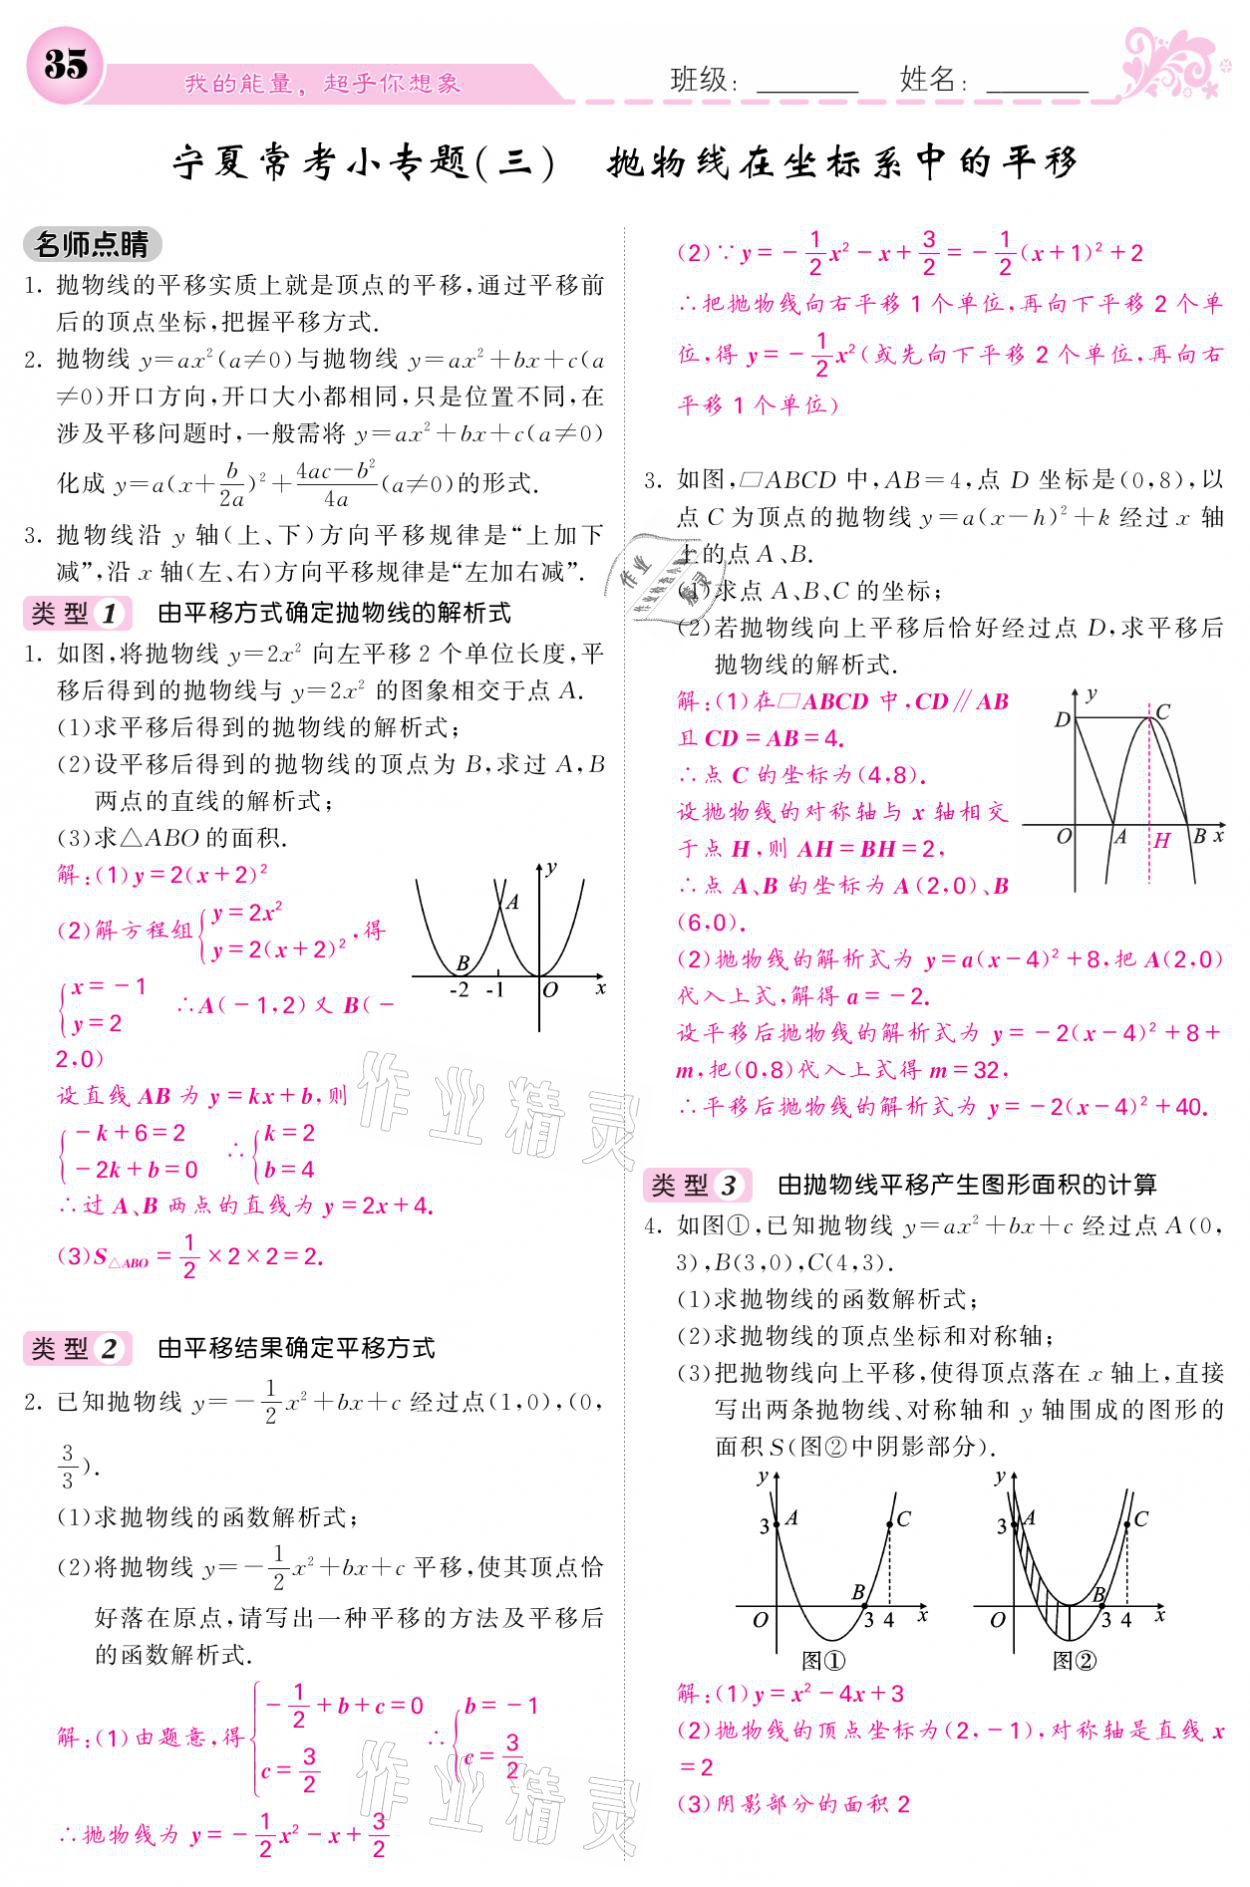 35
我的能量，超乎你想象
班级：________ 姓名：________
宁夏常考小专题(三) 抛物线在坐标系中的平移
名师点睛
1. 抛物线的平移实质上就是顶点的平移,通过平移前
后的顶点坐标,把握平移方式.
2. 抛物线 y=ax²(a≠0)与抛物线 y=ax²+bx+c(a
≠0)开口方向,开口大小都相同,只是位置不同,在
涉及平移问题时,一般需将 y=ax²+bx+c(a≠0)
化成 y=a(x+b/2a)²+(4ac-b²)/4a(a≠0)的形式.
3. 抛物线沿 y 轴(上、下)方向平移规律是“上加下
减”,沿 x 轴(左、右)方向平移规律是“左加右减”.
类型 1 由平移方式确定抛物线的解析式
1. 如图,将抛物线 y=2x² 向左平移 2 个单位长度,平
移后得到的抛物线与 y=2x² 的图象相交于点 A.
(1)求平移后得到的抛物线的解析式;
(2)设平移后得到的抛物线的顶点为 B,求过 A,B
两点的直线的解析式;
(3)求△ABO 的面积.
解:(1)y=2(x+2)²
(2)解方程组{y=2x²
y=2(x+2)²,得
{x=-1
y=2 ∴A(-1,2)又 B(-
2,0)
设直线 AB 为 y=kx+b,则
{-k+6=2
-2k+b=0 ∴{k=2
b=4
∴过 A、B 两点的直线为 y=2x+4.
(3)S△ABO=1/2×2×2=2.
y
A
B
-2 -1 O x
类型 2 由平移结果确定平移方式
2. 已知抛物线 y=-1/2x²+bx+c 经过点(1,0),(0,
3/3).
(1)求抛物线的函数解析式;
(2)将抛物线 y=-1/2x²+bx+c 平移,使其顶点恰
好落在原点,请写出一种平移的方法及平移后
的函数解析式.
解:(1)由题意,得{-1/2+b+c=0
c=3/2 ∴{b=-1
c=3/2
∴抛物线为 y=-1/2x²-x+3/2
(2)∵y=-1/2x²-x+3/2=-1/2(x+1)²+2
∴把抛物线向右平移 1 个单位,再向下平移 2 个单
位,得 y=-1/2x²(或先向下平移 2 个单位,再向右
平移 1 个单位)
3. 如图,▱ABCD 中,AB=4,点 D 坐标是(0,8),以
点 C 为顶点的抛物线 y=a(x-h)²+k 经过 x 轴
上的点 A、B.
(1)求点 A、B、C 的坐标;
(2)若抛物线向上平移后恰好经过点 D,求平移后
抛物线的解析式.
解:(1)在▱ABCD 中,CD∥AB
且 CD=AB=4.
∴点 C 的坐标为(4,8).
设抛物线的对称轴与 x 轴相交
于点 H,则 AH=BH=2,
∴点 A、B 的坐标为 A(2,0)、B
(6,0).
(2)抛物线的解析式为 y=a(x-4)²+8,把 A(2,0)
代入上式,解得 a=-2.
设平移后抛物线的解析式为 y=-2(x-4)²+8+
m,把(0,8)代入上式得 m=32,
∴平移后抛物线的解析式为 y=-2(x-4)²+40.
y
D C
O A H B x
类型 3 由抛物线平移产生图形面积的计算
4. 如图①,已知抛物线 y=ax²+bx+c 经过点 A(0,
3),B(3,0),C(4,3).
(1)求抛物线的函数解析式;
(2)求抛物线的顶点坐标和对称轴;
(3)把抛物线向上平移,使得顶点落在 x 轴上,直接
写出两条抛物线、对称轴和 y 轴围成的图形的
面积 S(图②中阴影部分).
y
3 A C
B
O 3 4 x
图①
y
3 A C
B
O 3 4 x
图②
解:(1)y=x²-4x+3
(2)抛物线的顶点坐标为(2,-1),对称轴是直线 x
=2
(3)阴影部分的面积 2
作业精灵
作业精灵